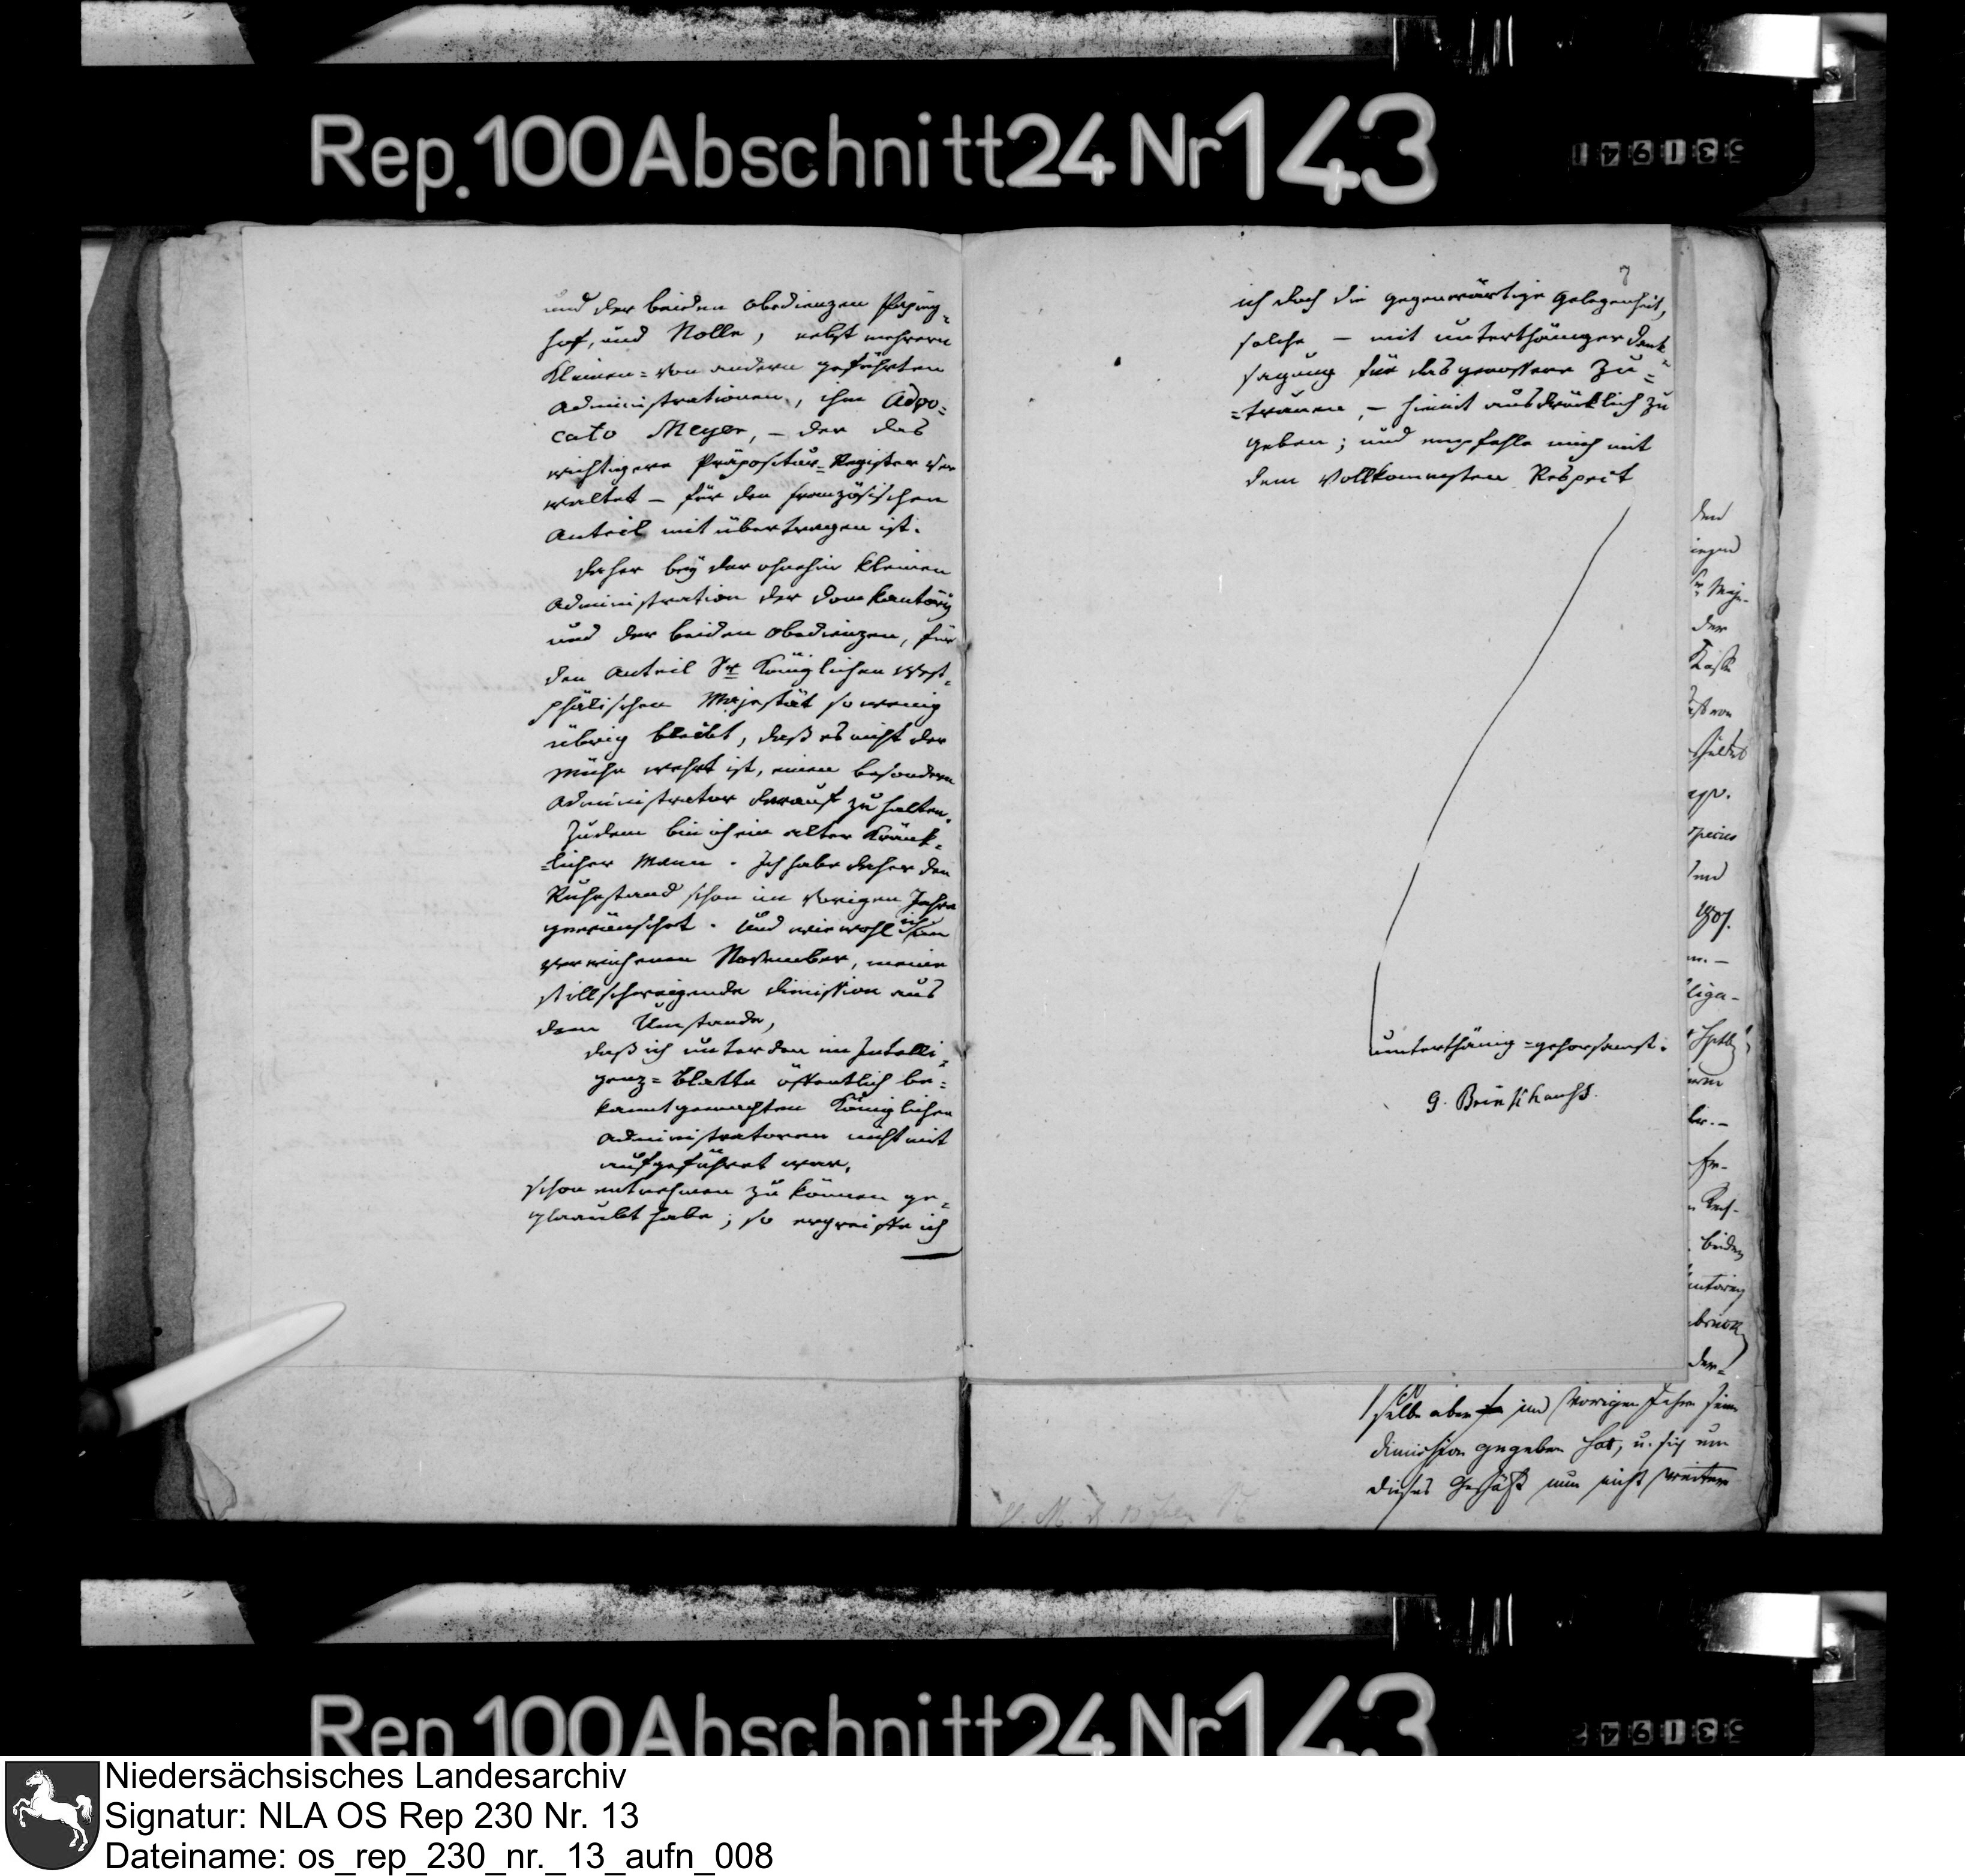 Rep. 100 Abschnitt 24 Nr 143
und der beiden obedienzen
hof, und Nolle, nebst mehrern
kleinen = von andern geführten
administrationen, ihm Advo=
cato Meyer, – der das
wichtigere Präpositur=Register ver
waltet – für den französischen
Anteil mit übertragen ist.
daher bey der ohnehin kleinen
administration der dom kantorey
und der beiden obedienzen, für
den anteil Sr Königlichen West=
phälischen Majestät so wenig
übrig bleibt, daß es nicht der
mühe wehrt ist, einen besondern
administrator darauf zu halten.
Zudem bin ich ein alter kränk=
=licher Mann. Ich habe daher den
Ruhestand schon im vorigen Jahre
gewünschet. Und wiewohl ich im
verwichenen November, meine
stillschweigende dimission aus
dem Umstande,
daß ich unter den im Intelli=
genz=blatte öffentlich be=
kannt gemachten Königlichen
administratoren nicht mit
aufgeführet war,
schon entnehmen zu können ge=
glaubt habe; so ergreiffe ich
7
ich doch die gegenwärtige gelegenheit,
solche – mit unterthäniger dank=
sagung für das genossene Zu=
=trauen, – hiemit ausdrücklich zu
geben; und empfehle mich mit
dem vollkommensten Respect
unterthänig=gehorsamst.
G.
der
1807.
beiden
selbe aber im vorigen Jahre seine
dimission gegeben hat, u. sich um
dieses Geschäft nun nicht weiter
Rep 100 Abschnitt 24 Nr 143
Niedersächsisches Landesarchiv
Signatur: NLA OS Rep 230 Nr. 13
Dateiname: os_rep_230_nr._13_aufn_008